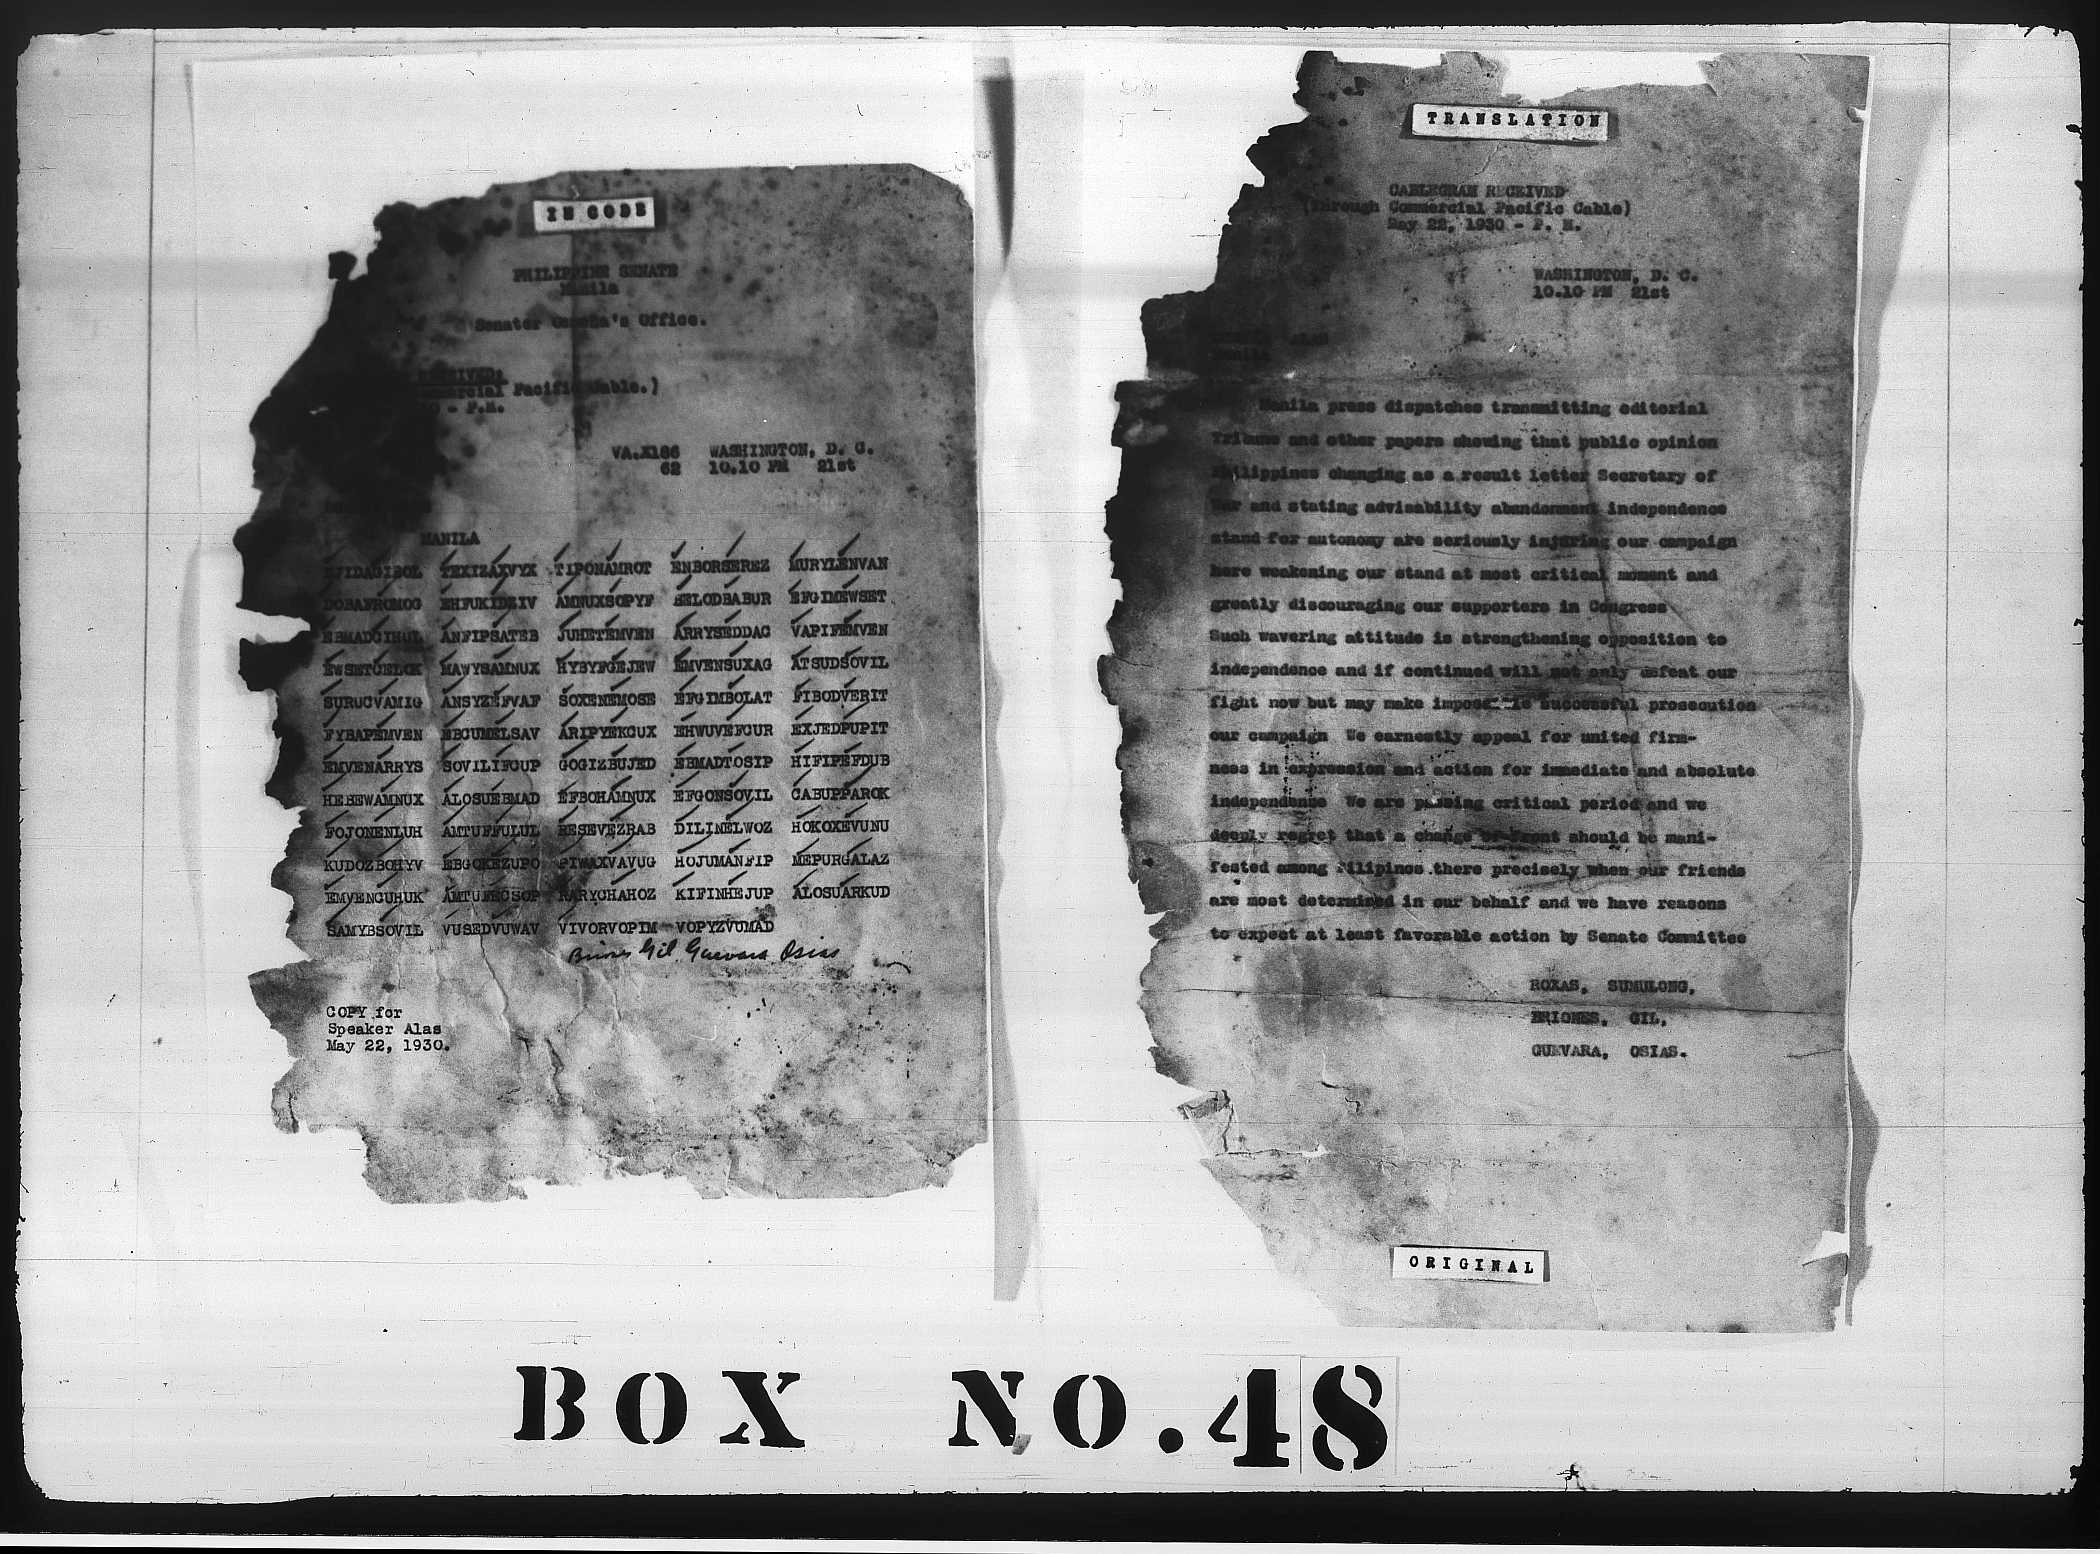 IN CODE
PHILIPPINE SENATE
Manila
Senator Osmeña's Office.
RECEIVED:
Commercial Pacific Cable.)
- P.M.
VA.X186 WASHINGTON, D. C.
62 10.10 PM 21st
MANILA
TEXIZAXVYX TIPONAMROT ENBORSEREZ MURYLENVAN
DOBAFROMOG EHFUKIDZIV AMNUXSOPYF BELODBABUR EFGIMEWSET
EBMADGIHUL ANFIPSATEB JUHETEMVEN ARRYSEDDAC VAPIFEMVEN
EWSETGELCK MAWYSAMNUX HYBYFGEJEW EMVENSUXAG ATSUDSOVIL
SURUCVAMIG ANSYZEFVAF SOXENEMOSE EFGIMBOLAT FIBODVERIT
FYBAPEMVEN EBCUMELSAV ARIPYEKCUX EHWUVEFCUR EXJEDPUPIT
EMVENARRYS SOVILIFCUP GOGIZBUJED EBMADTOSIP HIFIPEFDUB
HEBEWAMNUX ALOSUEBMAD EFBOHAMNUX EFGONSOVIL CABUPPAROK
FOJONENLUH AMTUFFULUL RESEVEZRAB DILIMELWOZ HOKOXEVUNU
KUDOZBOHYV EBGOKEZUPO PIWAXVAVUG HOJUMANFIP MEPURGALAZ
EMVENGUHUK AMTUFECSOP RARYCHAHOZ KIFINHEJUP ALOSUARKUD
SAMYBSOVIL VUSEDVUWAV VIVORVOPIM VOPYZVUMAD
Briones Gil Guevara Osias
COPY for
Speaker Alas
May 22, 1930.
TRANSLATION
CABLEGRAM RECEIVED
(Through Commercial Pacific Cable)
May 22, 1930 - P. M.
WASHINGTON, D. C.
10.10 PM 21st
Manila
Manila press dispatches transmitting editorial
Tribune and other papers showing that public opinion
Philippines changing as a result letter Secretary of
War and stating advisability abandonment independence
stand for autonomy are seriously injuring our campaign
here weakening our stand at most critical moment and
greatly discouraging our supporters in Congress
Such wavering attitude is strengthening opposition to
independence and if continued will not only defeat our
fight now but may make impossible successful prosecution
our campaign We earnestly appeal for united firm-
ness in expression and action for immediate and absolute
independence We are passing critical period and we
deeply regret that a change of front should be mani-
fested among Filipinos there precisely when our friends
are most determined in our behalf and we have reasons
to expect at least favorable action by Senate Committee
ROXAS, SUMULONG,
BRIONES, GIL,
GUEVARA, OSIAS.
ORIGINAL
BOX NO. 48